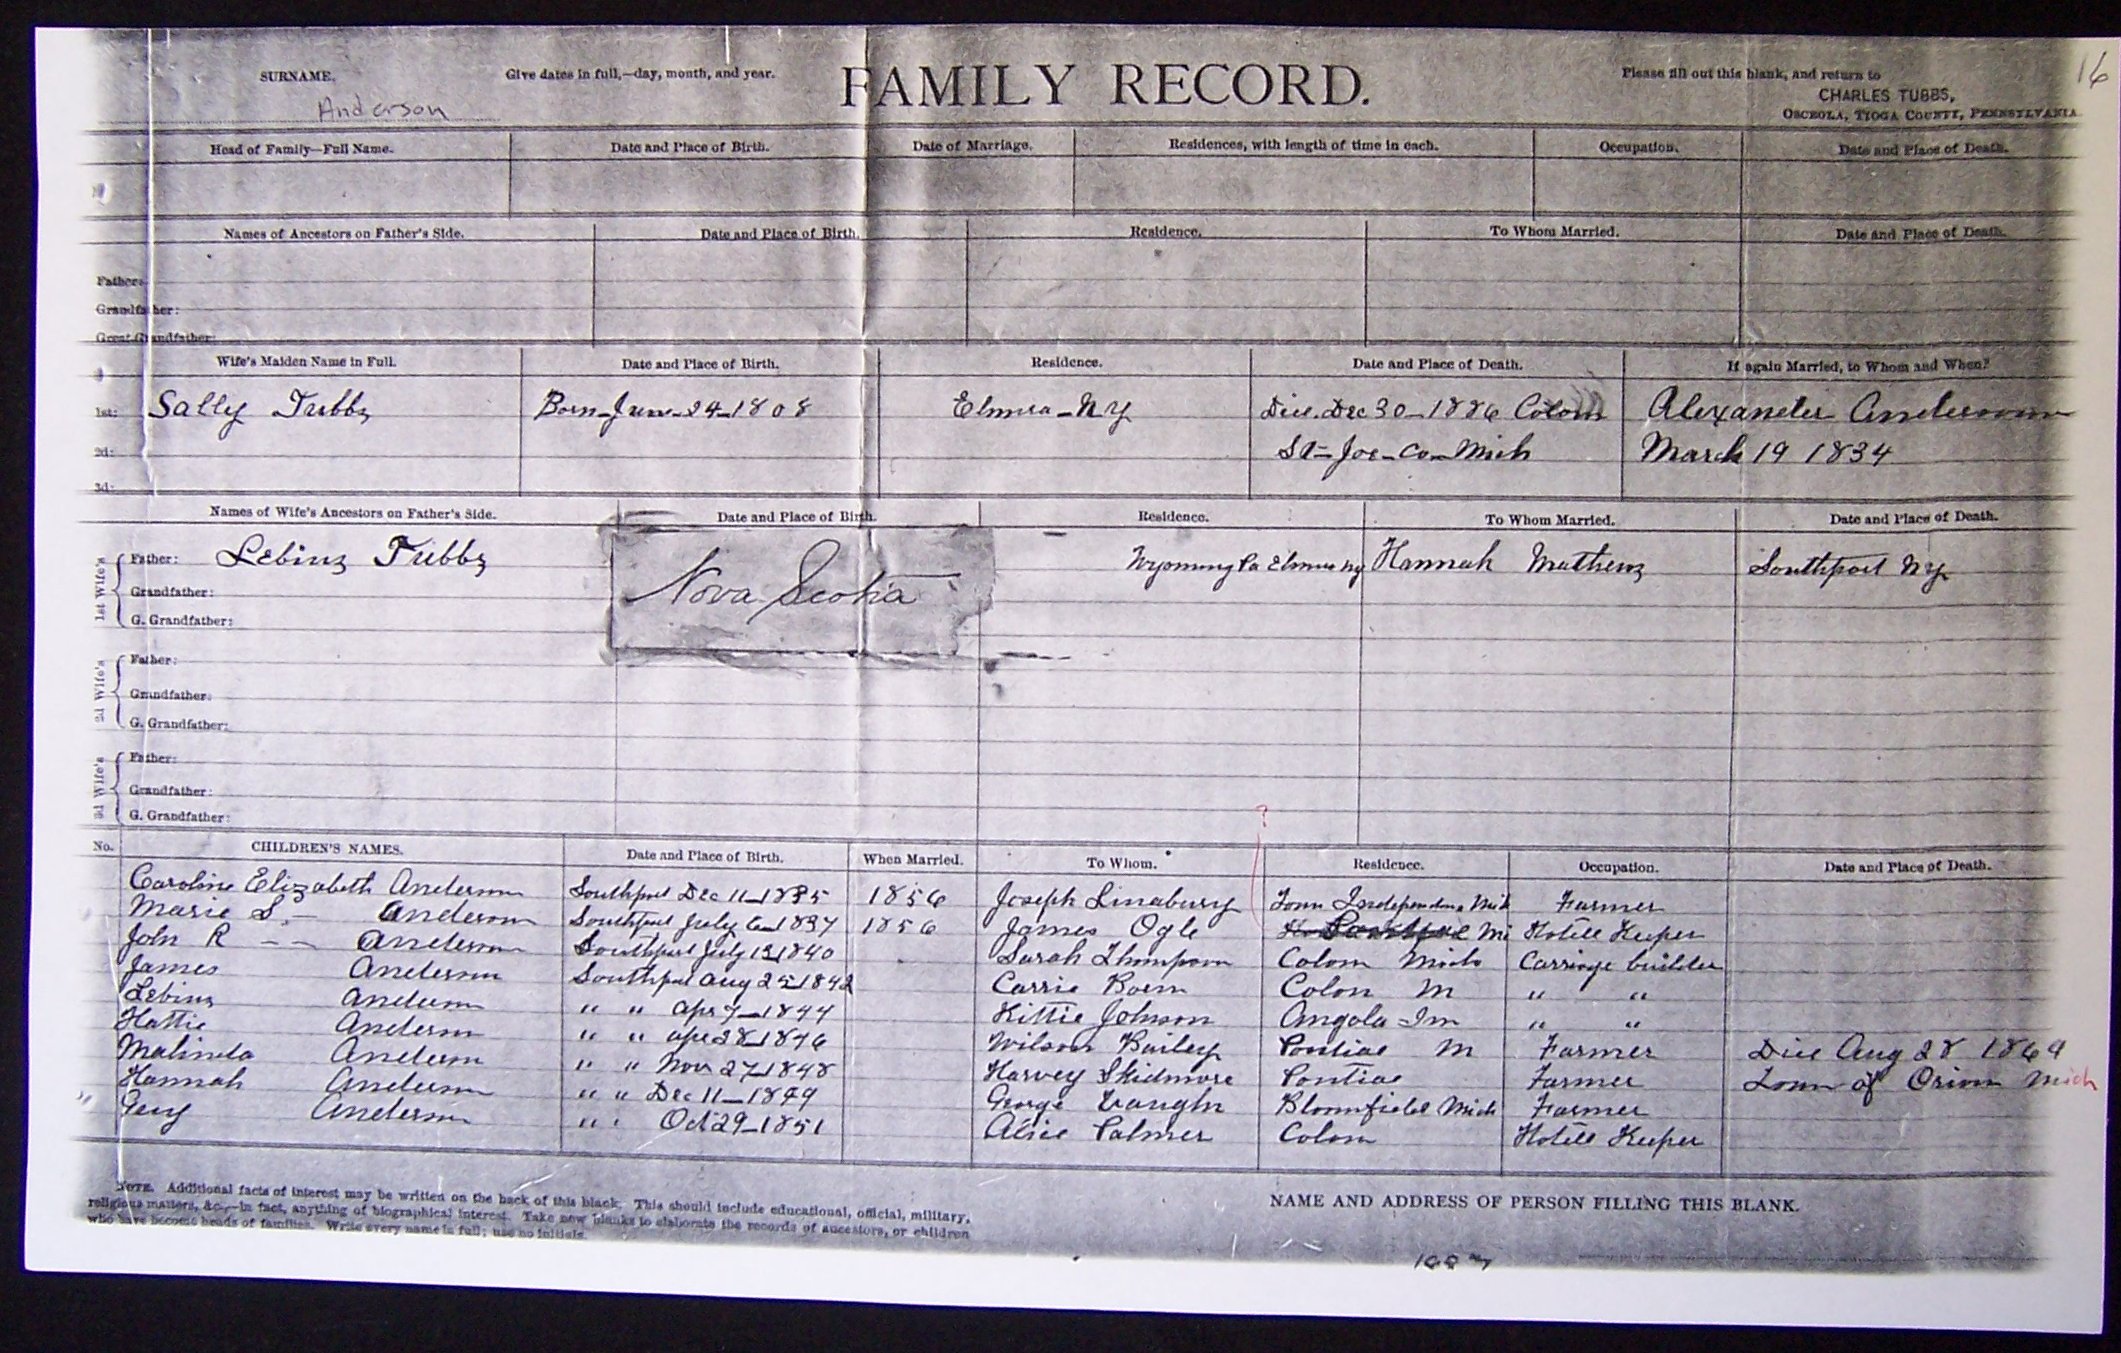 SURNAME.
Give dates in full,—day, month, and year.
FAMILY RECORD.
Please fill out this blank, and return to
16
Anderson
CHARLES TUBBS,
OSCEOLA, TIOGA COUNTY, PENNSYLVANIA
Head of Family—Full Name. Date and Place of Birth. Date of Marriage. Residences, with length of time in each. Occupation. Date and Place of Death.
Names of Ancestors on Father's Side. Date and Place of Birth. Residence. To Whom Married. Date and Place of Death.
Father:
Grandfather:
Great-Grandfather:
Wife's Maiden Name in Full. Date and Place of Birth. Residence. Date and Place of Death. If again Married, to Whom and When?
1st: Sally Tubbs Born-June-24-1808 Elmira-NY Died. Dec 30-1886 Colon Alexander Anderson
2d: St-Joe-Co-Mich March 19 1834
3d:
Names of Wife's Ancestors on Father's Side. Date and Place of Birth. Residence. To Whom Married. Date and Place of Death.
1st Wife's
Father: Lebius Tubbs Wyoming Pa Elmira Ny Hannah Mathews Southport Ny
Grandfather: Nova Scotia
G. Grandfather:
2d Wife's
Father:
Grandfather:
G. Grandfather:
3d Wife's
Father:
Grandfather:
G. Grandfather:
?
No. CHILDREN'S NAMES. Date and Place of Birth. When Married. To Whom. Residence. Occupation. Date and Place of Death.
Caroline Elizabeth Anderson Southport Dec 11-1835 1856 Joseph Linabury Town Independence Mich Farmer
Marie S.- Anderson Southport July 6 1837 1856 James Ogle Mi Hotell Keeper
John R -- Anderson Southport July 13 1840 Sarah Thompson Colon Mich Carriage builder
James Anderson Southport Aug 25 1842 Carrie Colon M " "
Lebius Anderson " " Apr 7-1844 Kittie Johnson Angola In " "
Hattie Anderson " " Apr 28-1846 Wilson Bailey Pontiac M Farmer Died Aug 28 1869
Malinda Anderson " " Nov 27-1848 Harvey Skidmore Pontiac Farmer Town of Orion Mich
Hannah Anderson " " Dec 11-1849 George Vaughn Bloomfield Mich Farmer
" Guy Anderson " " Oct 29-1851 Alice Palmer Colon Hotell Keeper
NOTE. Additional facts of interest may be written on the back of this blank. This should include educational, official, military,
religious matters, &c.,—in fact, anything of biographical interest. Take new blanks to elaborate the records of ancestors, or children
who have become heads of families. Write every name in full; use no initials.
NAME AND ADDRESS OF PERSON FILLING THIS BLANK.